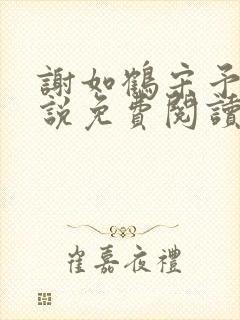 謝如鶴宋予
說免費閱讀
崔嘉夜禮